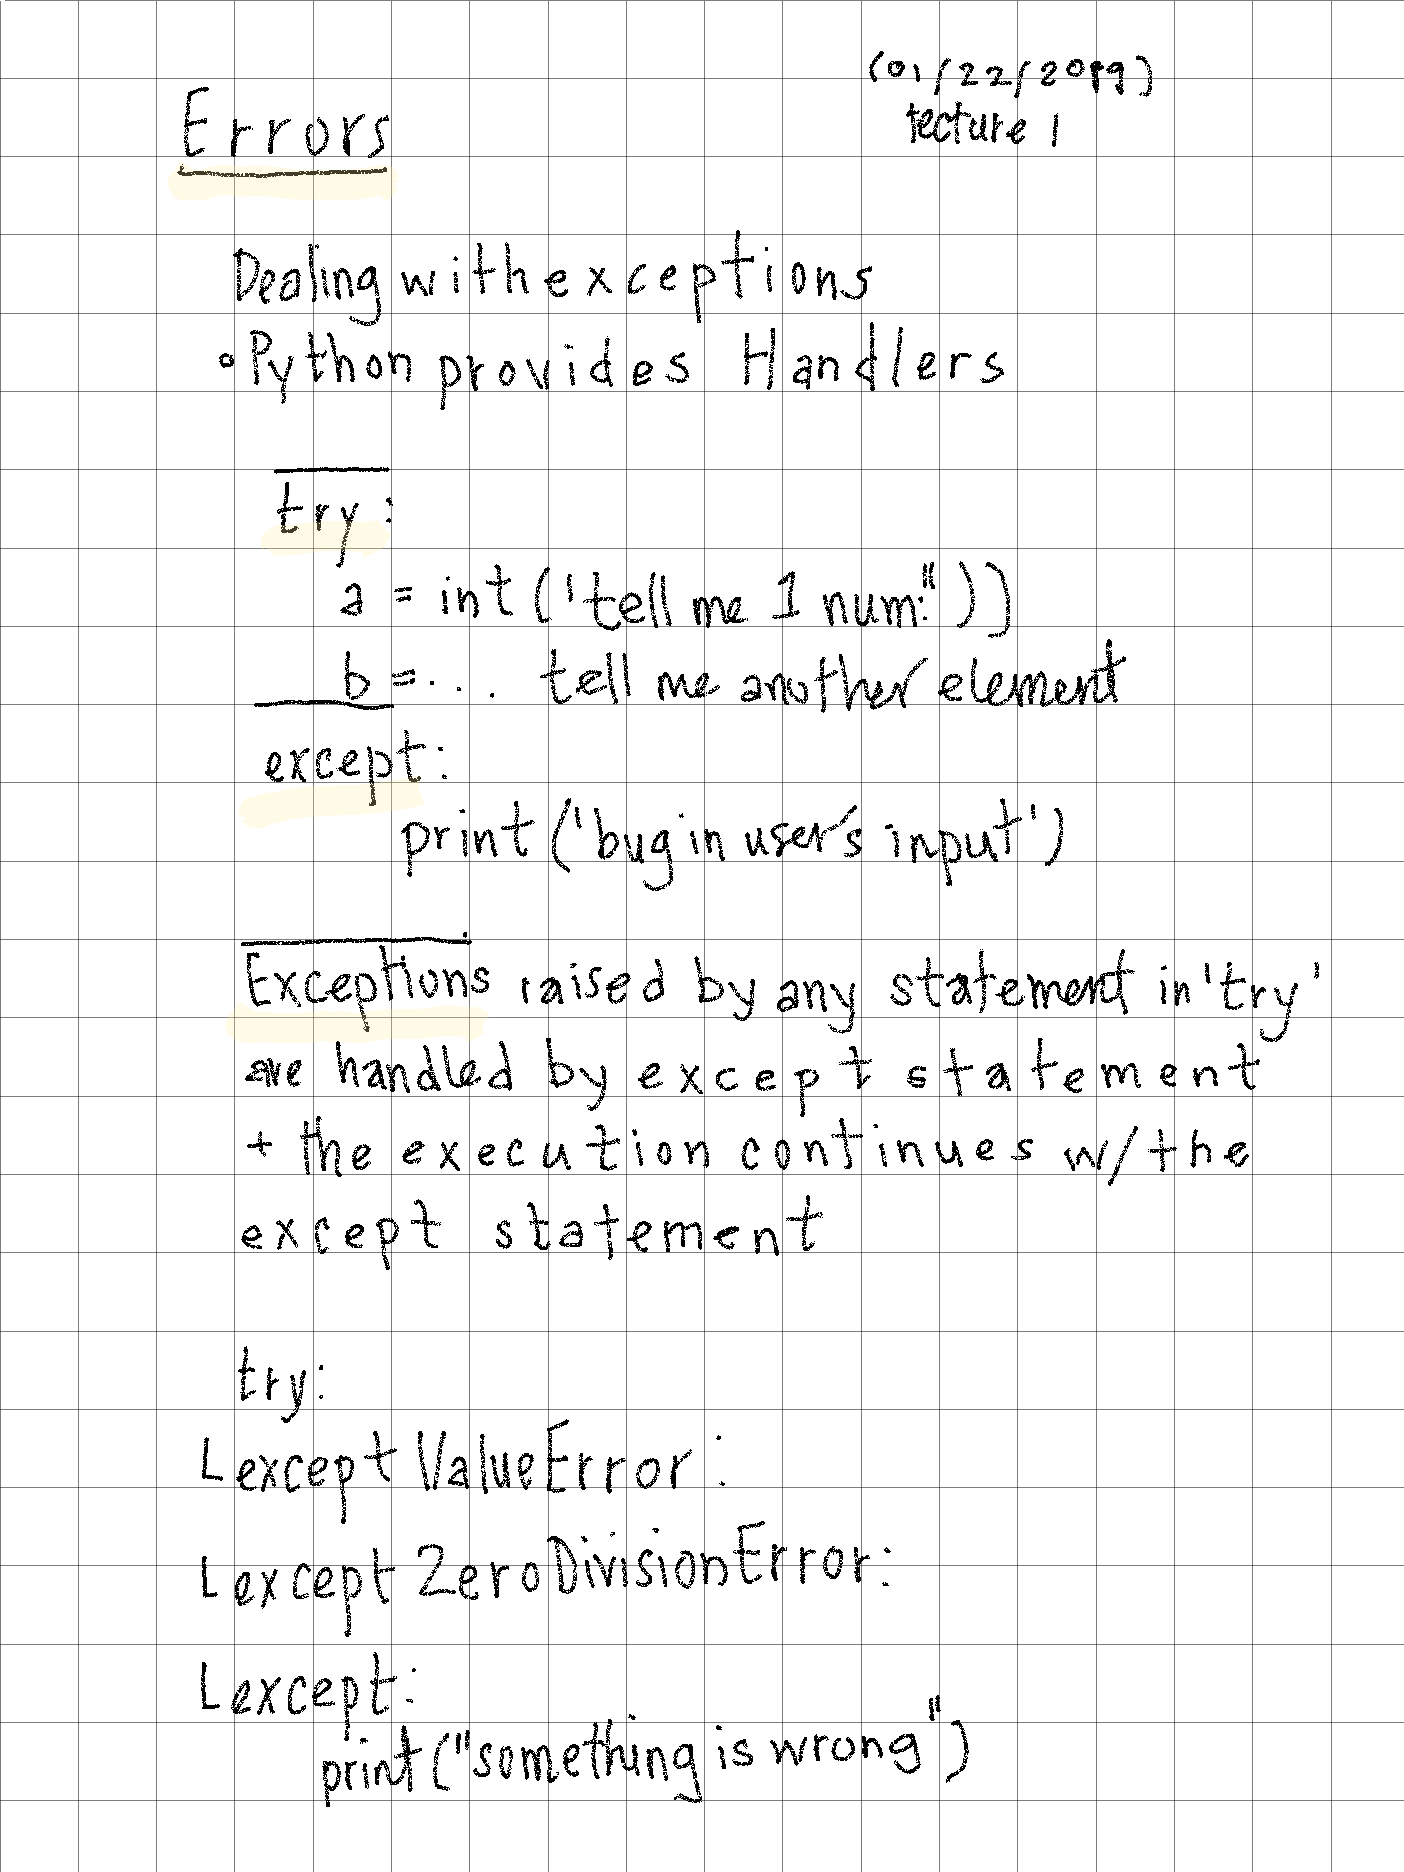 (01/22/2019)
Lecture 1
Errors
Dealing with exceptions
• Python provides Handlers
try:
a = int ('tell me 1 num:"))
b = ... tell me another element
except:
print ('bug in user's input')
Exceptions raised by any statement in 'try'
are handled by except statement
+ the execution continues w/ the
except statement
try:
L except ValueError:
L except ZeroDivisionError:
L except:
print ("something is wrong")